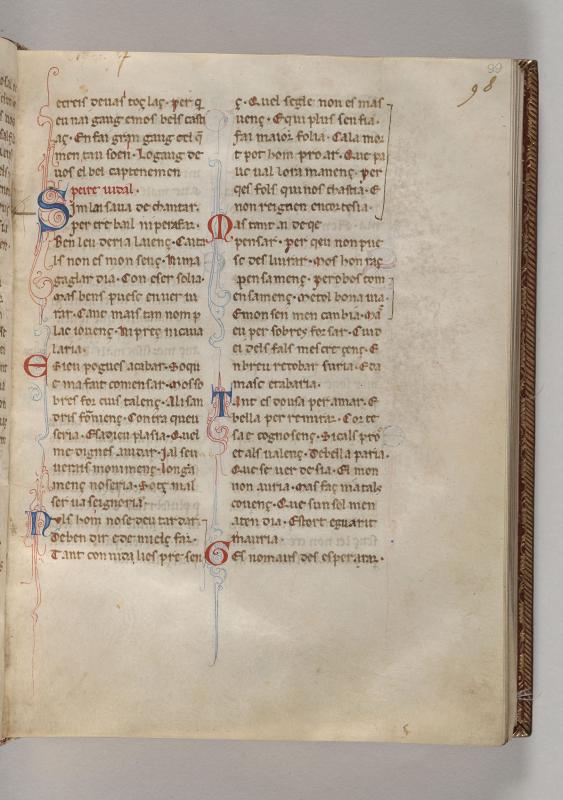 99
98
ecreis deuas toç laç · per q
eu nai gaug emos bels casti
aç · En fai gran gaug cel q̄
men tan soen · Lo gaug de
uos el bel captenemen
peire uidal ·
Sim lassaua de chantar ·
per tre bail ni per afar ·
Ben leu deria la ienç · Caita
ls non es mon senç · Ni ma
gaglardia · Con eser solia ·
Mas bens puesc en uer iu
rar · Canc mais tan nom p
lac iouenç · Ni preç ni caua
laria ·
E sieu pogues acabar · So qu
e ma fait comensar · Mos so
bres for cuis talenç · Alisan
dris
seria · E sa dieu plasia · Quel
me dignes aiudar · Ja l seu
uerais monimenç · longa
menç no seria · Sotç mal
ser ua seignoria
Nuls hom no se deu tardar ·
De ben dir e de mielç far ·
Tant con uida lies presen
ç · Quel segle non es mas
uenç · E qui plus sen fia ·
fai maior folia · Cala mor
t pot hom proar · Que pa
uc ual lora manenç · per
qes fols qui nos chastia · E
non reignen en cortesia ·
Mas tant ai de qe
pensar · per qeu non pue
sc des liurar · Mos hon raç
pensamenç · pero bos com
ensamenç · Mecol bona uia ·
E mon sen men canbia · Ma
eu per sobres for sar · Cuid
ei dels fals mescre çenç · E
n breu recobar suria · E da
masc e tabaria ·
Tant es dousa per amar · E
bella per remirar · Cor te
sa e cognosenç · Si cals pro
et als ualenç · De bella paria ·
Que se uer desia · El mon
non auria · Mas faç mi tals
couenç · Que sun sol men
aten dia · Estort e guarit
mauria ·
Ges nomais des esperar ·